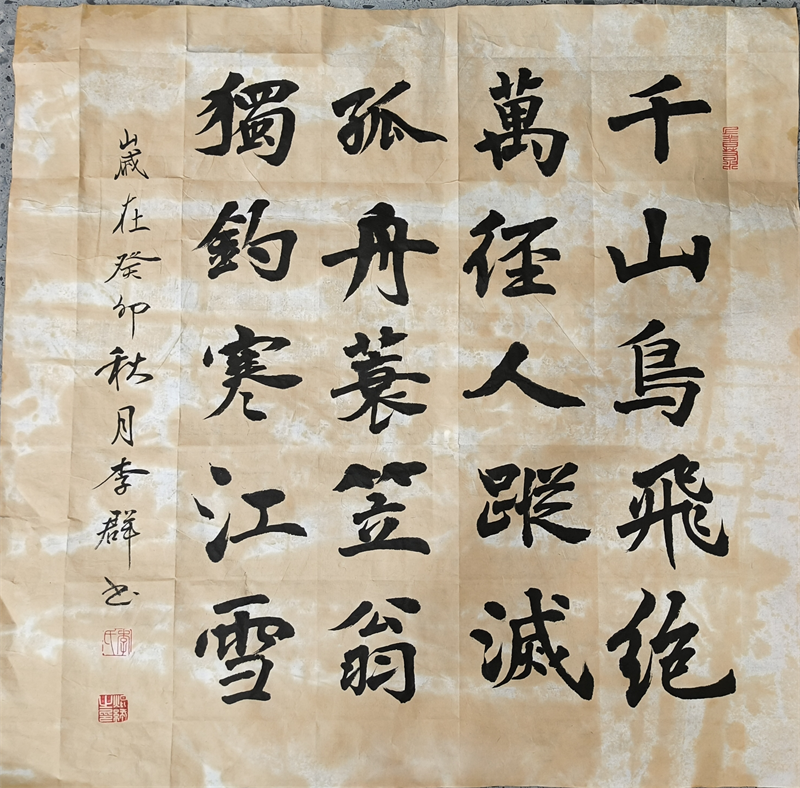 千山鳥飛絶
萬徑人蹤滅
孤舟蓑笠翁
獨釣寒江雪
歲在癸卯秋月李群书